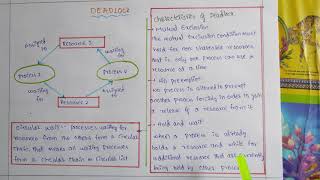 DEADLOCK
Resource 1
assigned
to
waiting
for
Process 1
Process 2
waiting
for
assigned
to
Resource 2
Circular wait :- Processes waiting for
resources from the others form a circular
chain, that means all waiting processes
form a circular chain or circular list
Characteristics of Deadlock
Mutual Exclusion
The mutual exclusion condition must
hold for non sharable resources
that is only one process can use a
resource at a time
No preemption
no process is allowed to preempt
another process forcibly in order to gain
a release of a resource from it
Hold and wait
when a process is already
holds a resource and waits for
additional resources that are currently
being held by other process